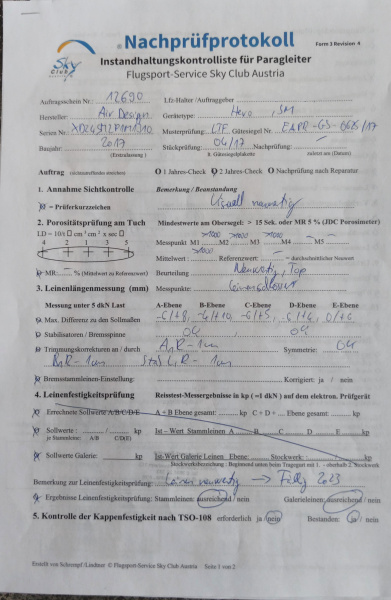 Sky Club Austria
Nachprüfprotokoll
Form 3 Revision 4
Instandhaltungskontrolliste für Paragleiter
Flugsport-Service Sky Club Austria
Auftragsschein Nr.: 12690 Lfz-Halter /Auftraggeber
Hersteller: Air Design Gerätetype: Hero, SM
Serien Nr. Musterprüfung: LTF Gütesiegel Nr. EAPR-GS-0626/17
Baujahr: 2017 Stückprüfung: 04/17 Nachprüfung:
(Erstzulassung) lt. Gütesiegelplakette zuletzt am (Datum)
Auftrag (nichtzutreffendes streichen) O 1 Jahres-Check O 2 Jahres-Check O Nachprüfung nach Reparatur
1. Annahme Sichtkontrolle Bemerkung / Beanstandung
= Prüferkurzzeichen Visuell neuwertig
2. Porositätsprüfung am Tuch Mindestwerte am Obersegel: > 15 Sek. oder MR 5 % (JDC Porosimeter)
LD = 10/t □ cm² x sec □ >1000 >1000 >1000
4 2 1 3 5 Messpunkt M1 M2 M3 M4 M5
Mittelwert: >1000 Referenzwert: = durchschnittlicher Neuwert
MR: — % (Mittelwert zu Referenzwert) Beurteilung Neuwertig, Top
3. Leinenlängenmessung (mm) Messpunkte:
Messung unter 5 dkN Last A-Ebene B-Ebene C-Ebene D-Ebene E-Ebene
Max. Differenz zu den Sollmaßen -6/+8, -4/+10, -6/+5, -6/+4, 0/+6
Stabilisatoren / Bremsspinne 04 04
Trimmungskorrekturen an / durch A, R - 1cm Symmetrie: 04
B, R - 1cm Stab L, R - 1cm
Bremsstammleinen-Einstellung: Korrigiert: ja / nein
4. Leinenfestigkeitsprüfung Reisstest-Messergebnisse in kp (=1 dkN) auf dem elektron. Prüfgerät
Errechnete Sollwerte A/B/C/D/E A + B Ebene gesamt: kp C + D + ... Ebene gesamt: kp
Sollwerte : / kp Ist – Wert Stammleinen A B C D E kp
je Stammleine: A/B C/D(E)
Sollwerte Galerie: kp Ist-Wert Galerie Leinen Ebene: Stockwerk : kp
Stockwerkbezeichnung : Beginnend unten beim Tragegurt mit 1. - oberhalb 2. Stockwerk
Bemerkung zur Leinenfestigkeitsprüfung: Leinen neuwertig → Fällig 2023
Ergebnisse Leinenfestigkeitsprüfung: Stammleinen: ausreichend / nein Galerieleinen: ausreichend / nein
5. Kontrolle der Kappenfestigkeit nach TSO-108 erforderlich ja / nein Bestanden: ja / nein
Erstellt von Schrempf /Lindmar © Flugsport-Service Sky Club Austria Seite 1 von 2